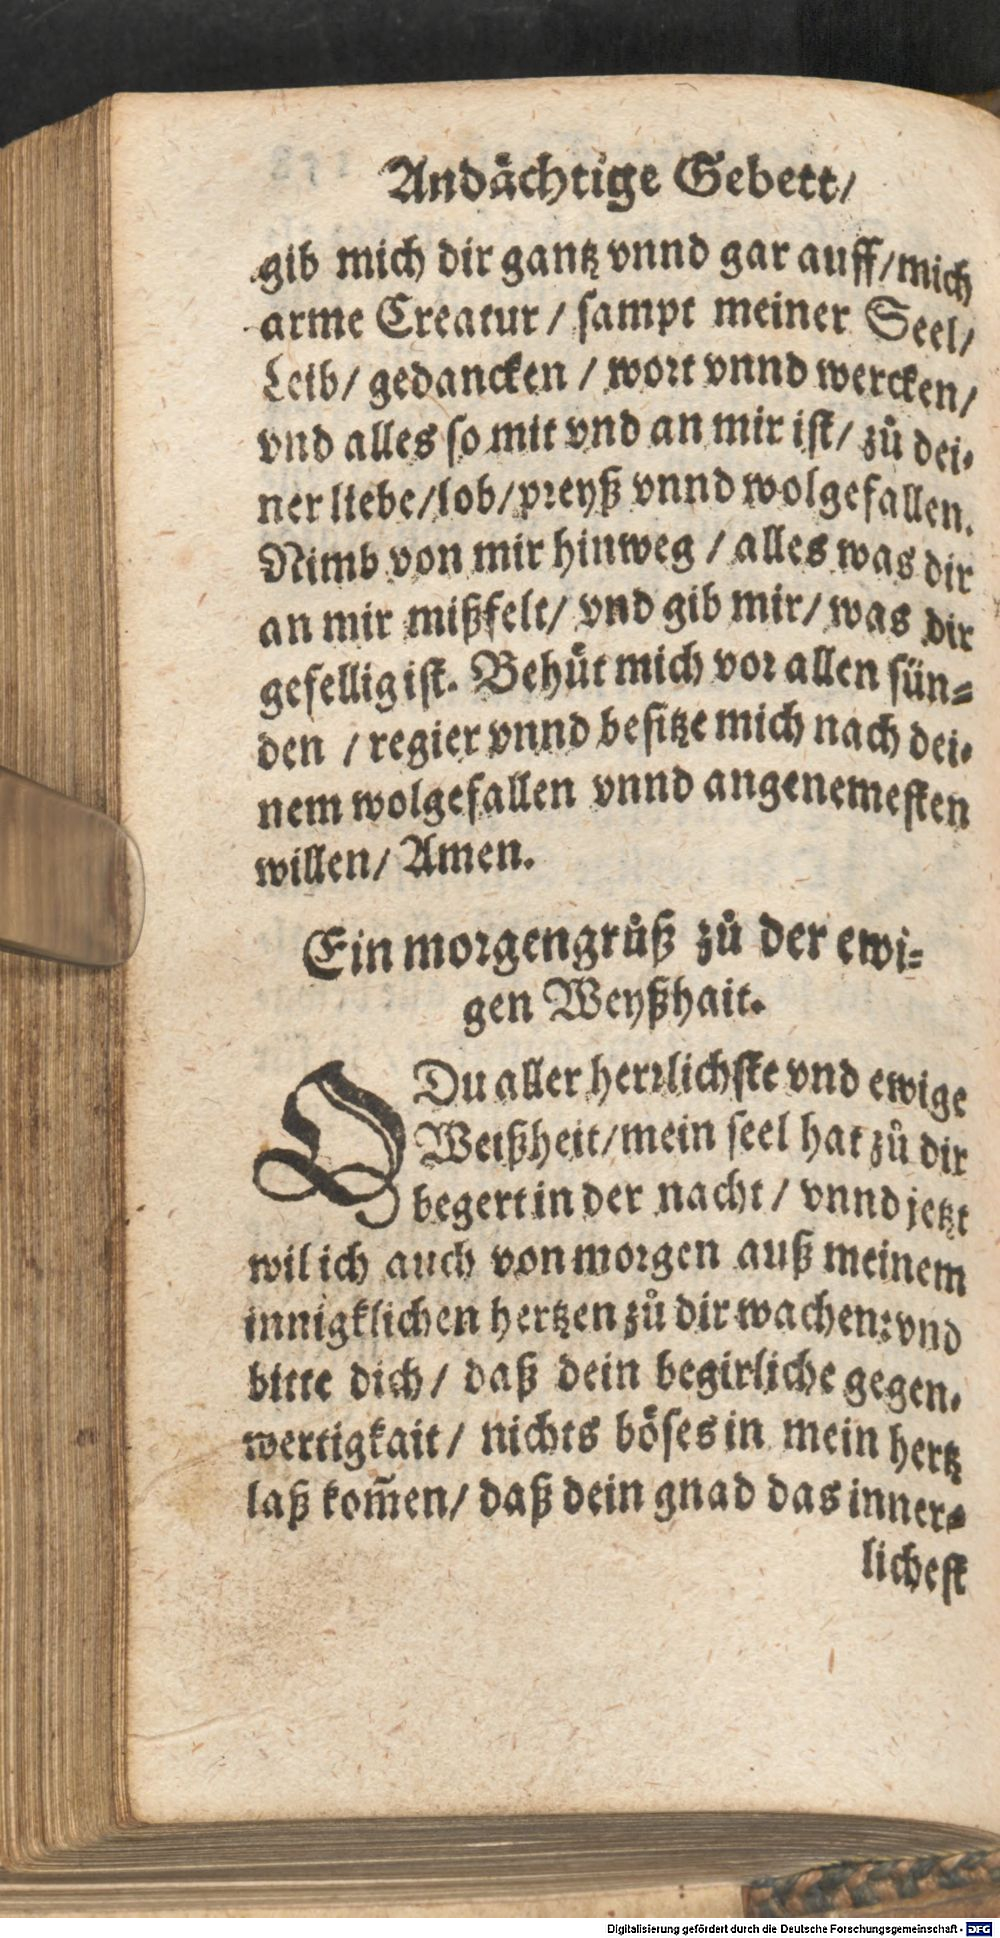 Andaͤchtige Gebett/
gib mich dir gantz vnnd gar auff/mich
arme Creatur / sampt meiner Seel/
Leib/ gedancken / wort vnnd wercken/
vnd alles so mit vnd an mir ist/ zuͦ dei-
ner liebe/lob/preyß vnnd wolgefallen.
Nimb von mir hinweg / alles was dir
an mir mißfelt/ vnd gib mir/ was dir
gefellig ist. Behuͤt mich vor allen sün-
den / regier vnnd besitze mich nach dei-
nem wolgefallen vnnd angenemesten
willen/ Amen.
Ein morgengruͦß zuͦ der ewi-
gen Weyßhait.
O Du aller herrlichste vnd ewige
Weißheit/mein seel hat zuͦ dir
begert in der nacht/ vnnd jetzt
wil ich auch von morgen auß meinem
innigklichen hertzen zuͦ dir wachen: vnd
bitte dich/ daß dein begirliche gegen-
wertigkait/ nichts boͤses in mein hertz
laß kom̃en/ daß dein gnad das inner-
lichest
Digitalisierung gefördert durch die Deutsche Forschungsgemeinschaft - DFG